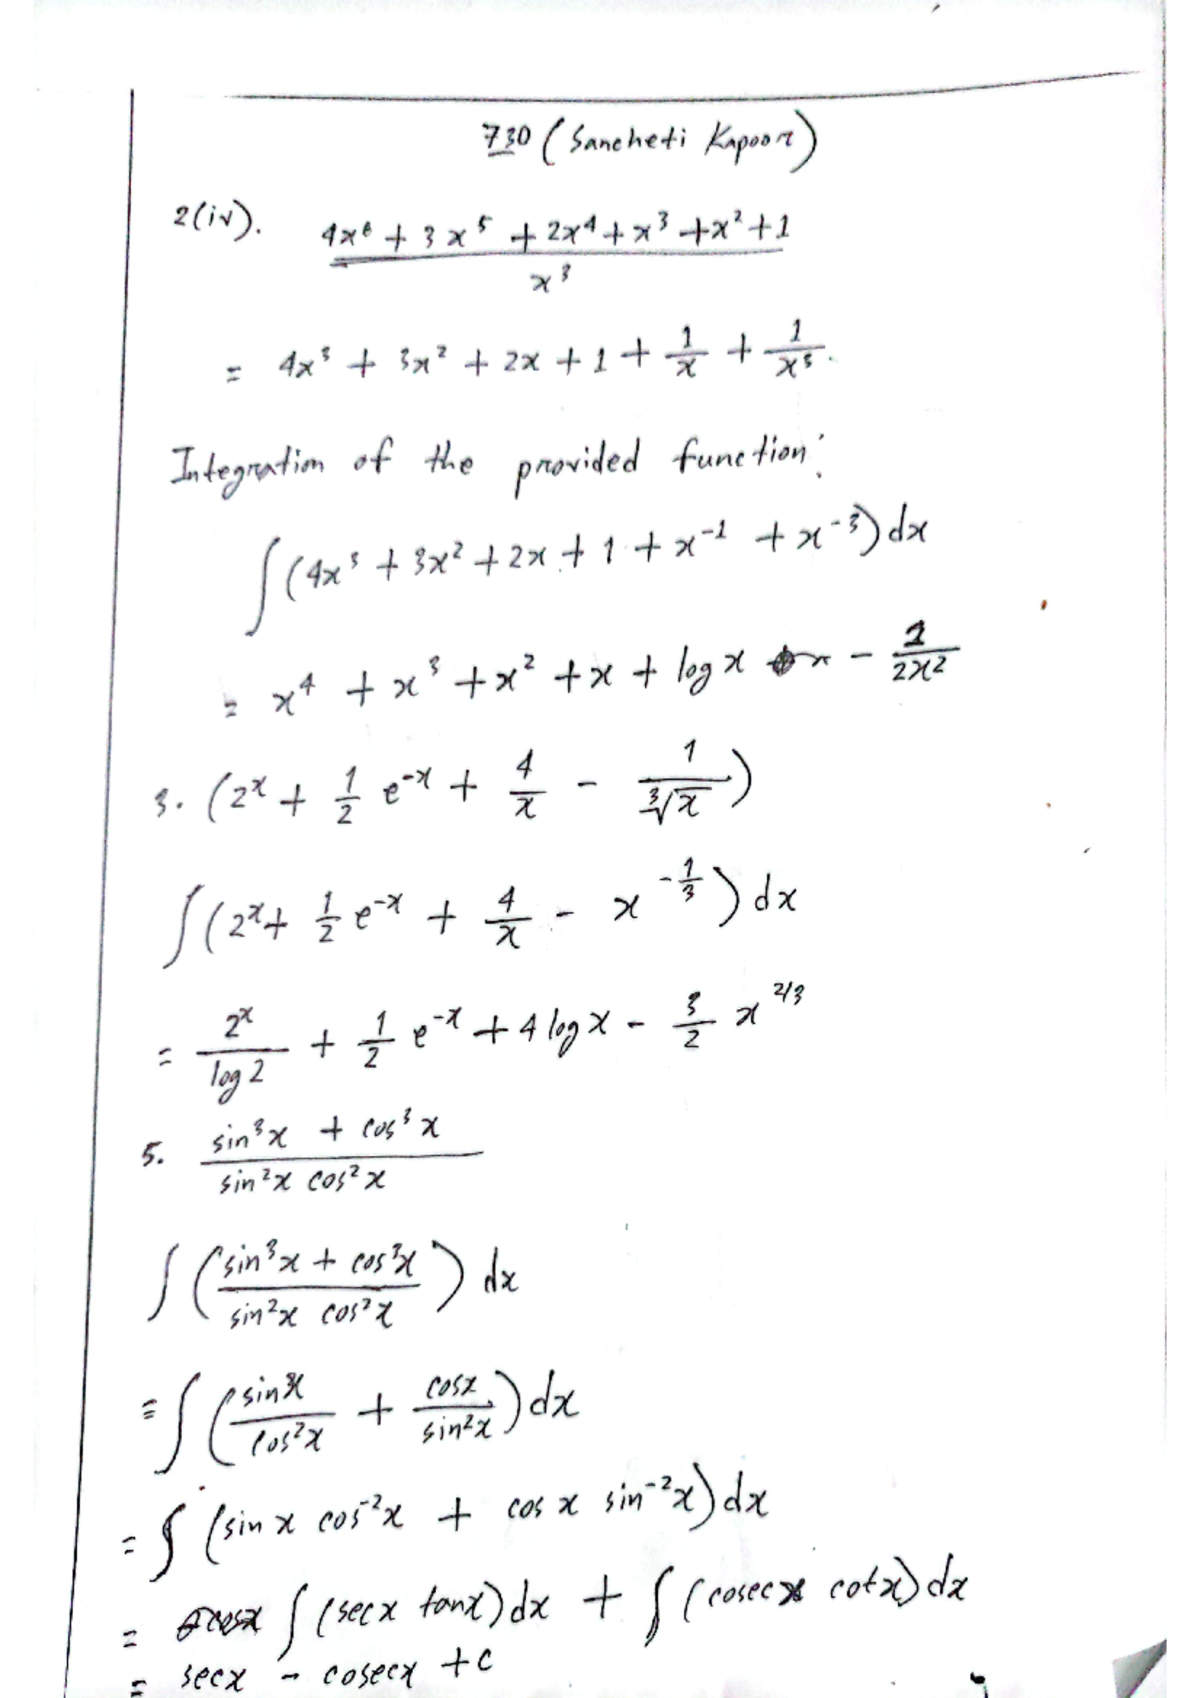 730 (Sancheti Kapoor)
2(iv). (4x⁶ + 3x⁵ + 2x⁴ + x³ + x² + 1) / x³
= 4x³ + 3x² + 2x + 1 + 1/x + 1/x³.
Integration of the provided function:
∫(4x³ + 3x² + 2x + 1 + x⁻¹ + x⁻³) dx
= x⁴ + x³ + x² + x + log x - 1/2x²
3. (2ˣ + 1/2 e⁻ˣ + 4/x - 1/∛x)
∫(2ˣ + 1/2 e⁻ˣ + 4/x - x^(-1/3)) dx
= 2ˣ/log 2 + 1/2 e⁻ˣ + 4 log x - 3/2 x^(2/3)
5. (sin³x + cos³x) / (sin²x cos²x)
∫ ((sin³x + cos³x) / (sin²x cos²x)) dx
= ∫ (sin x/cos²x + cosx/sin²x) dx
= ∫ (sin x cos⁻²x + cos x sin⁻²x) dx
= ∫ (secx tanx) dx + ∫ (cosecx cotx) dx
= secx - cosecx + c